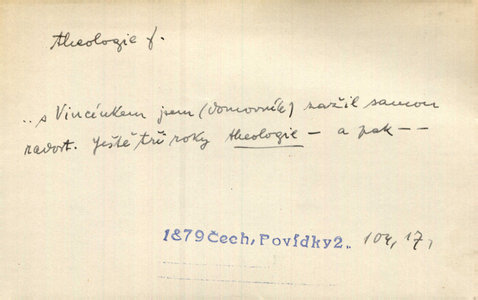 theologie f.
„s Vincínkem jsem (domovník) zažil samou
radost. Ještě tři roky theologie – a pak – –
1879 Čech, Povídky 2. 104, 17,